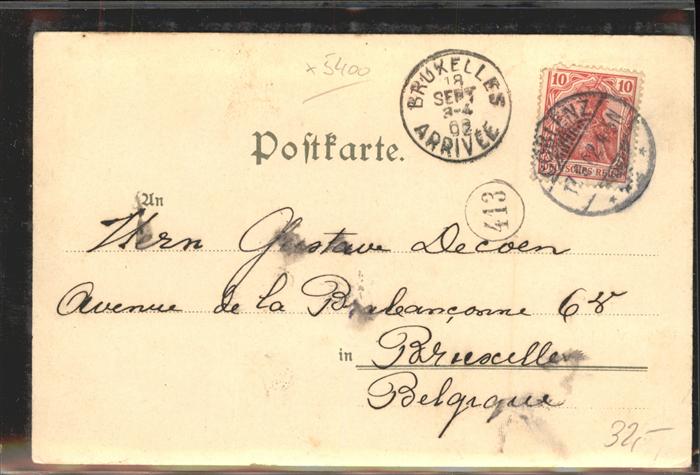 x 5400
BRUXELLES
18
SEPT
3-4
02
ARRIVÉE
10 10
DEUTSCHES REICH
COBLENZ
Postkarte.
413
An
Herrn Gustave Decoen
Avenue de la Brabançonne 68
in Bruxelles
Belgique
32,-